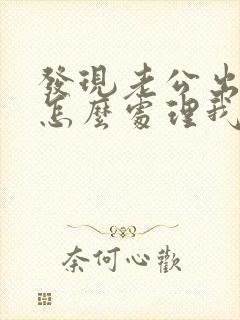 發現老公出
怎麼處理我
奈何心歡